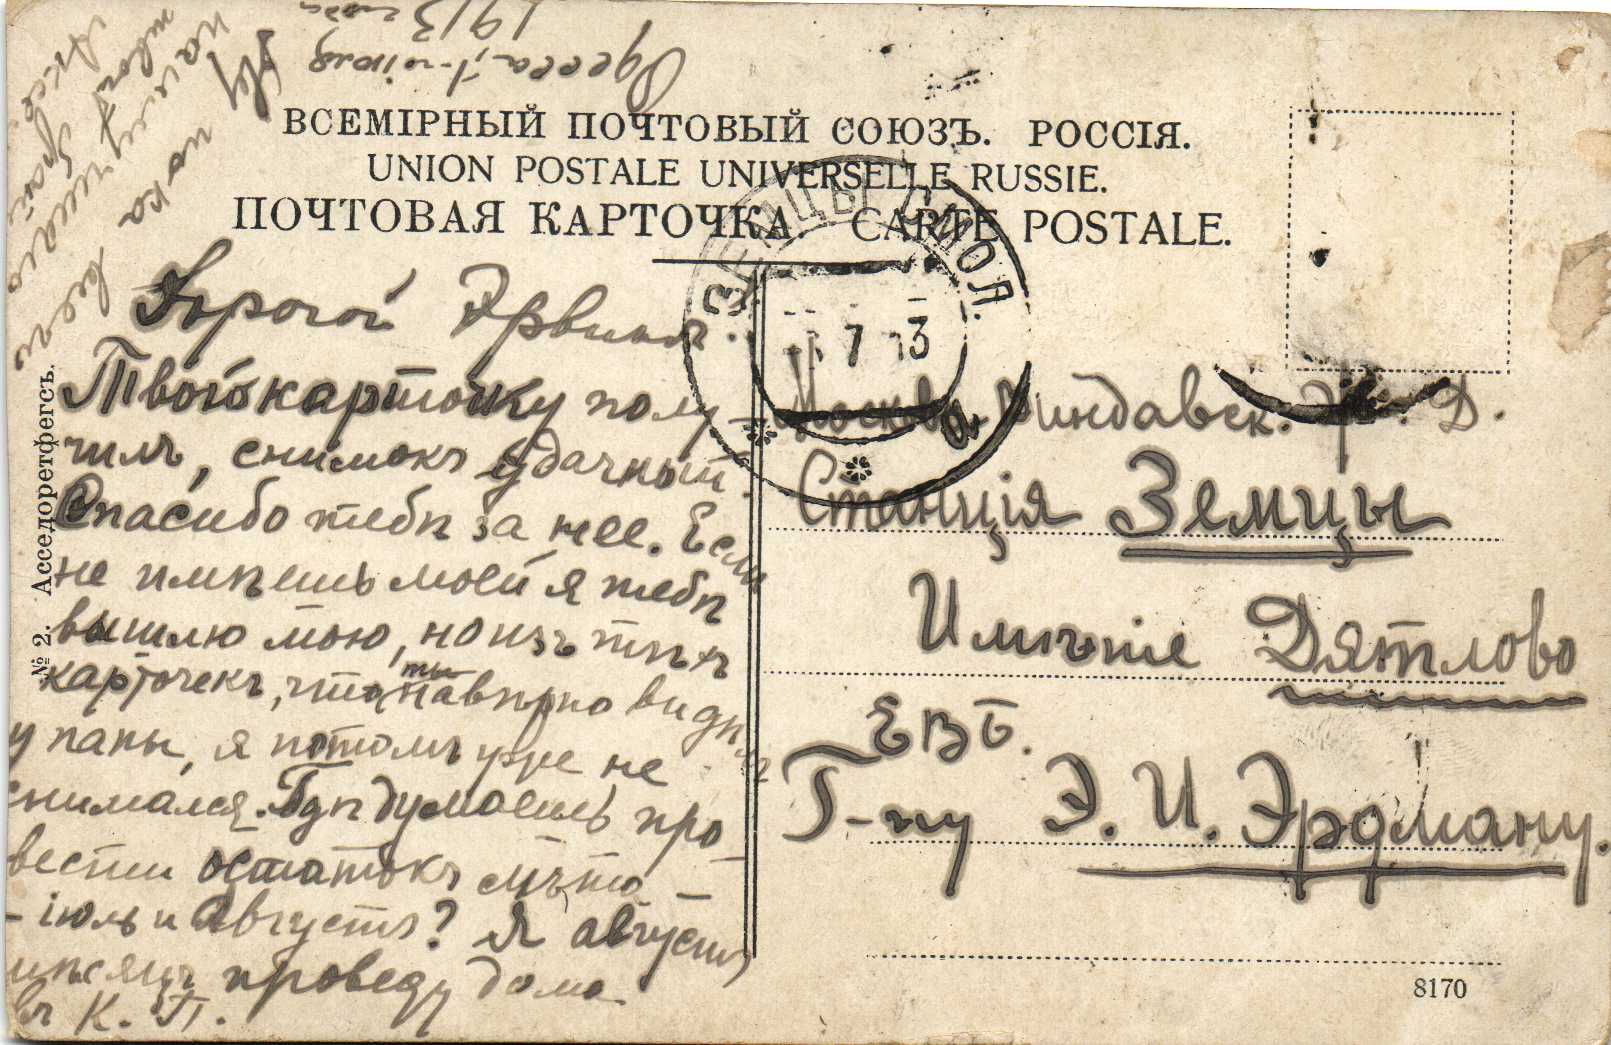 Одесса, 1-го іюля
1913 года
ВСЕМІРНЫЙ ПОЧТОВЫЙ СОЮЗЪ. РОССІЯ.
UNION POSTALE UNIVERSELLE RUSSIE.
ПОЧТОВАЯ КАРТОЧКА. CARTE POSTALE.
Дорогой Эрвинъ.
Твою карточку полу-
чилъ, снимокъ удачный.
Спасибо тебѣ за нее. Если
не имѣешь моей я тебѣ
вышлю мою, но изъ тѣхъ
карточекъ, что ты навѣрно видѣлъ
у папы, я потомъ уже не
снимался. Гдѣ думаешь про
вести остатокъ лѣта –
– іюль и Августъ? Я августъ
мѣсяцъ проведу дома
въ К. П.
Ну пока всего
наилучшаго
твой
ЗЕМЦЫ
7 13
Москов. Виндавск. Ж. Д.
Станція Земцы
Имѣніе Дятлово
ЕВБ.
Г-ну Э. И. Эрдману.
№ 2. Асседоретфегсъ.
8170